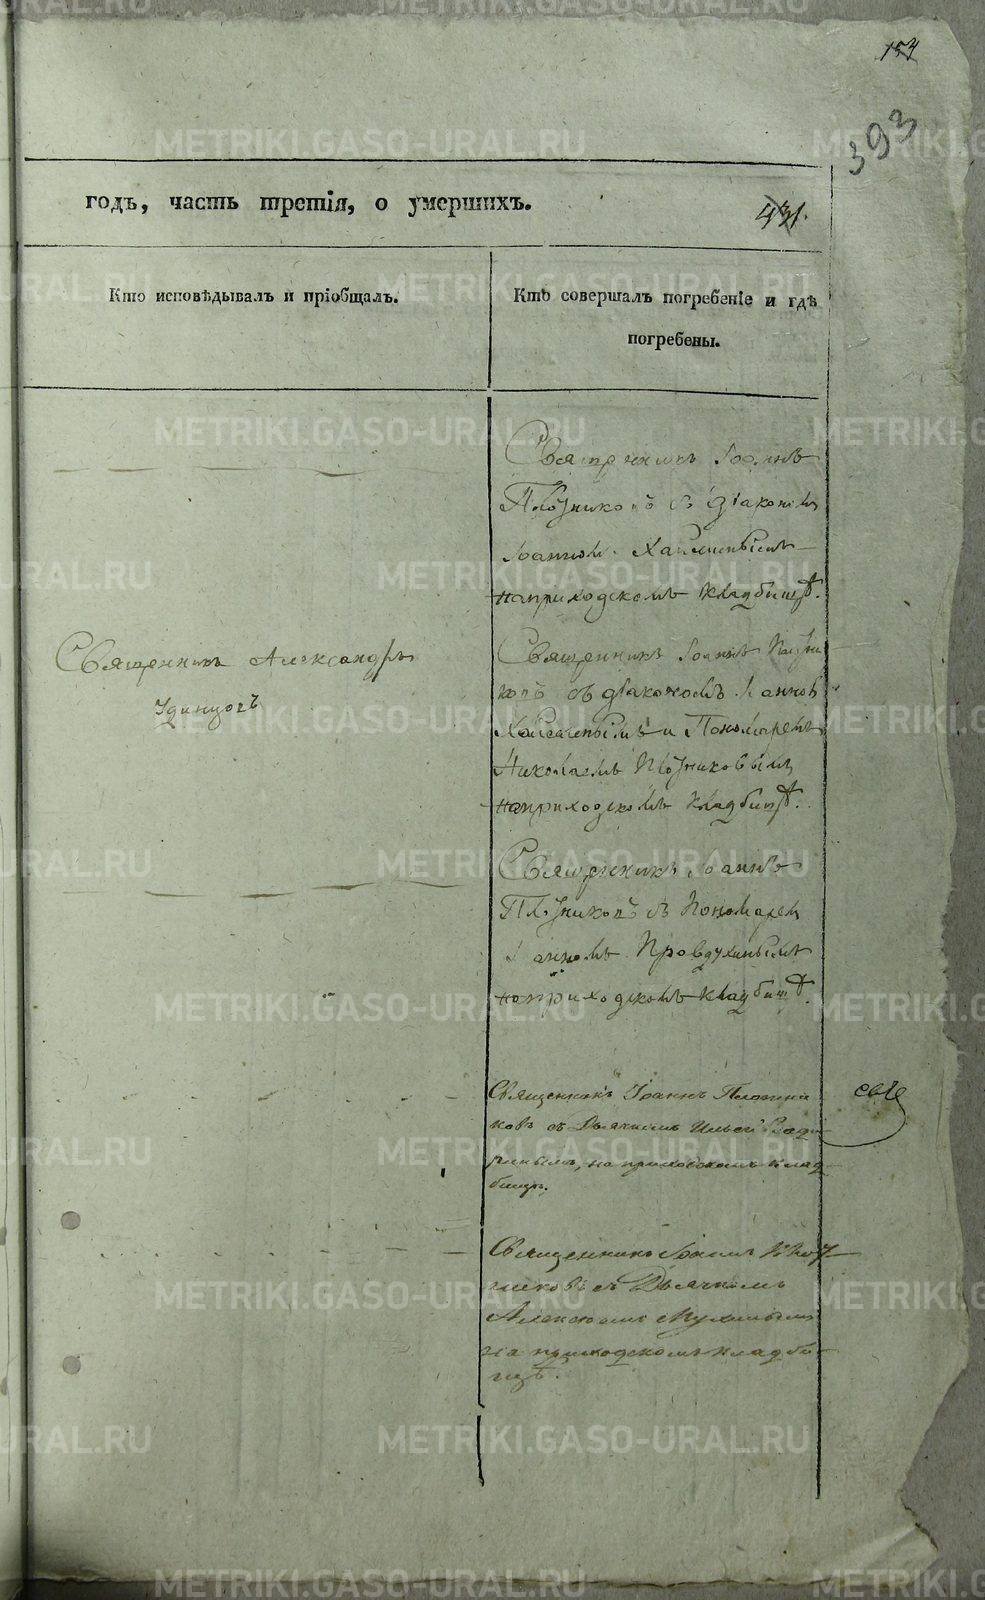 154
393
годъ, часть третія, о умершихъ.
431.
Кто исповѣдывалъ и пріобщалъ.
Кто совершалъ погребеніе и гдѣ
погребены.
Священникъ Іоаннъ
Плотниковъ съ Діакономъ
Іоанномъ
на приходскомъ кладбищѣ.
Священникъ Александръ
Удинцовъ
Священникъ Іоаннъ Плотни
ковъ съ діакономъ Іанномъ
и Пономаремъ
Николаемъ Плотниковымъ
на приходскомъ кладбищѣ.
Священникъ Іоаннъ
Плотниковъ съ Пономарем
Іанномъ
на приходскомъ кладбищѣ.
Священникъ Іоаннъ Плотни
ковъ съ Дьячкомъ Ильей
на приходскомъ клад
бищѣ.
Священникъ Іоаннъ Плот
никовъ съ Дьячкомъ
Алексѣемъ
на приходскомъ кладби
щѣ.
METRIKI.GASO-URAL.RU